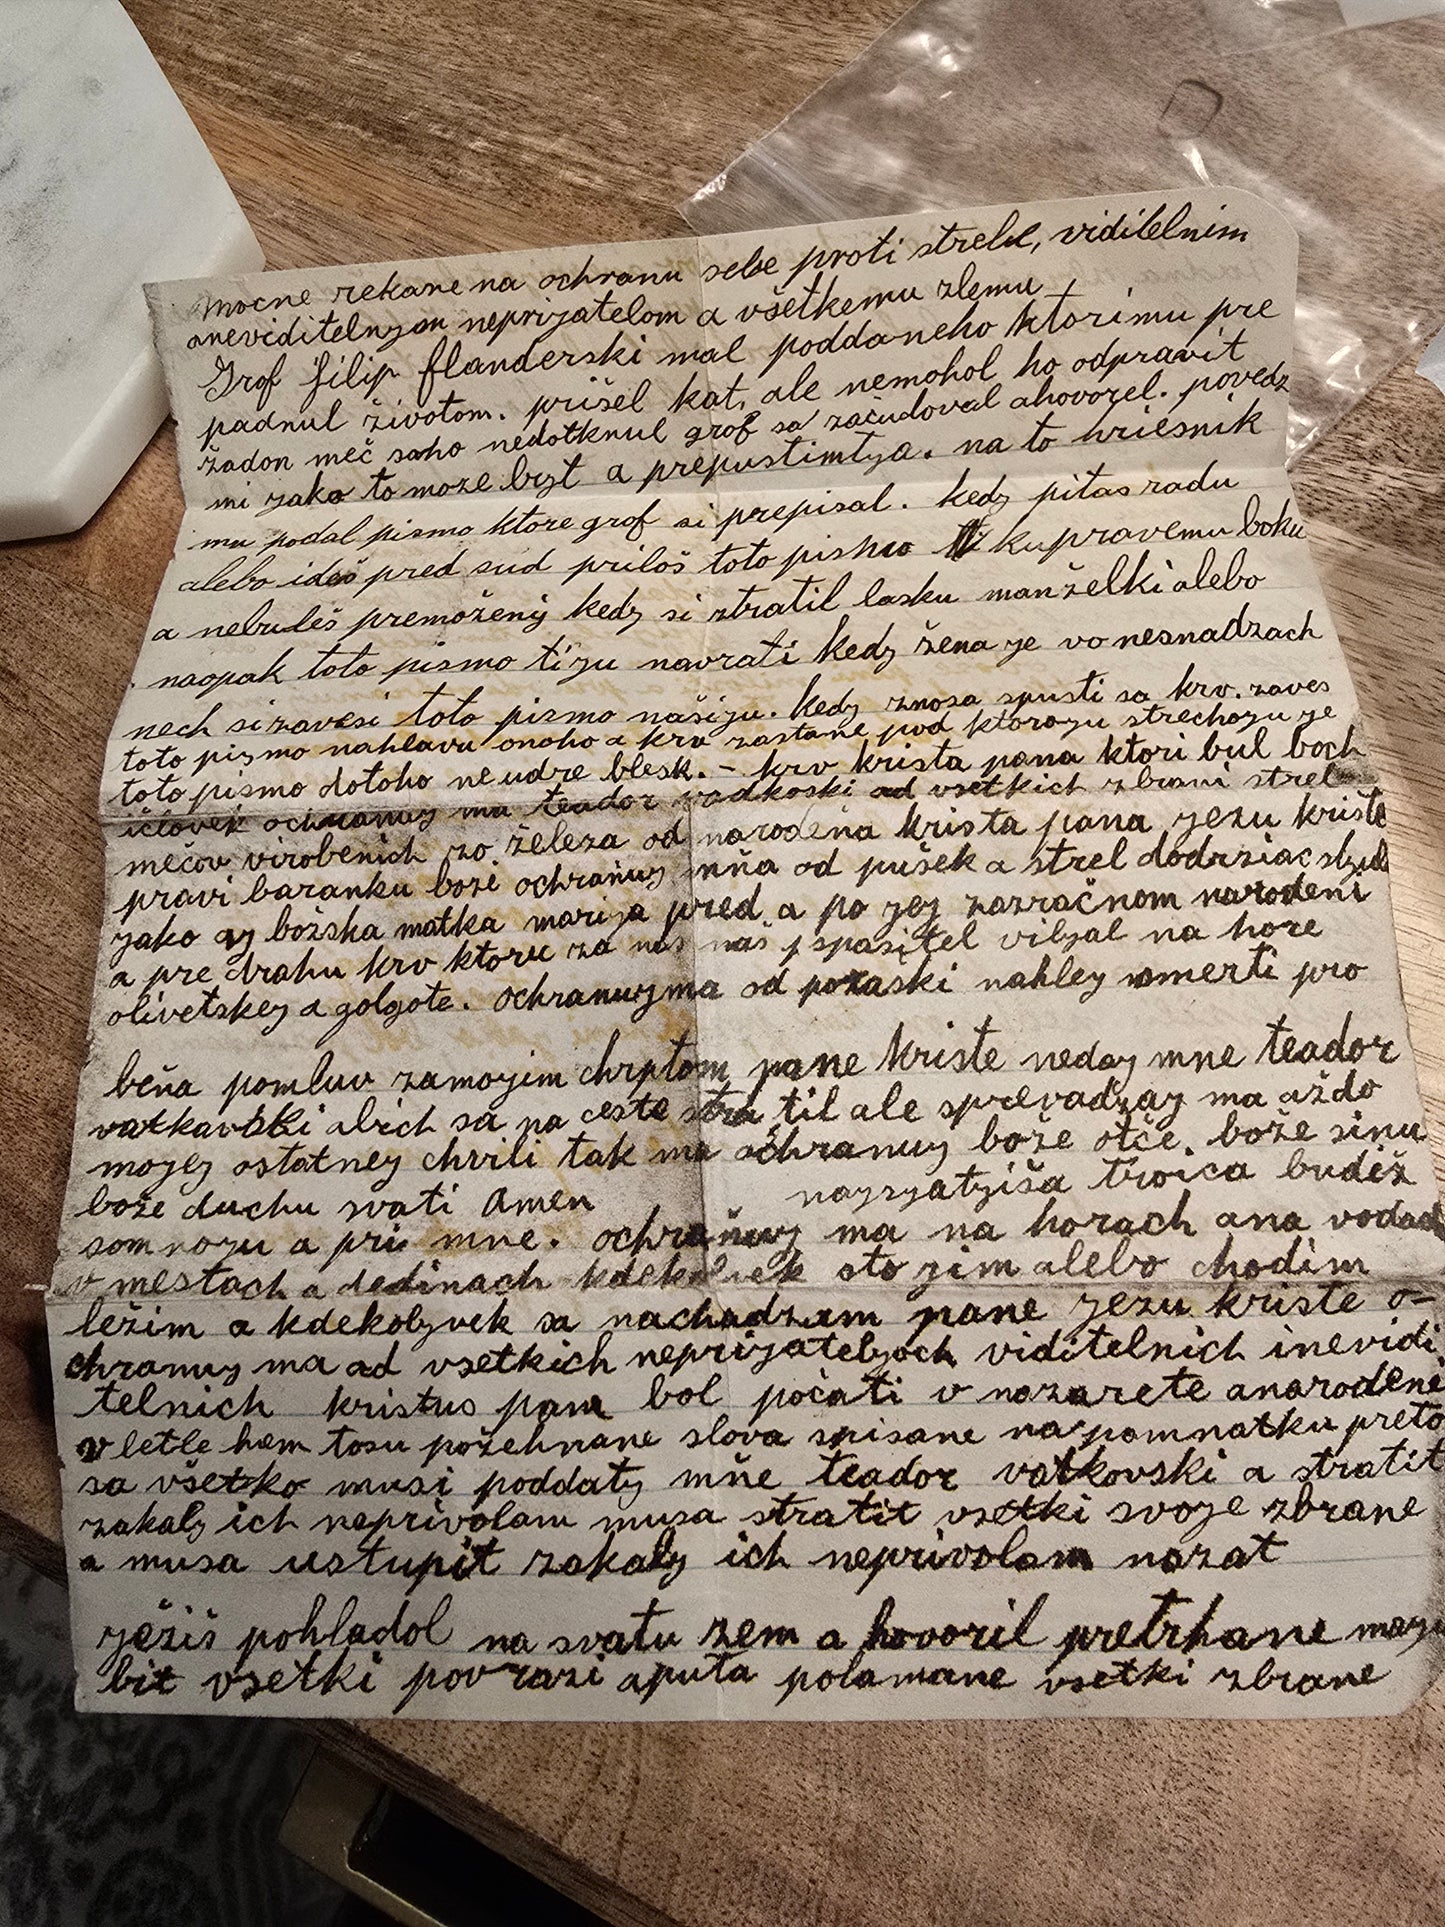 mocne rekane na ochranu sebe proti strele, viditelnim
aneviditelnym neprijatelom a všetkemu zlemu
Grof filip flanderski mal poddaneho ktorimu pre
padnul životom. prišel kat, ale nemohol ho odpravit
žadon meč saho nedotknul grof sa začudoval ahovorel. povedz
mi jako to može byt a prepustimtya. na to hriešnik
mu podal pismo ktore grof si prepisal. kedy pitas radu
alebo ideš pred sud priloš toto pismo ku pravemu boku
a nebudeš premoženy kedy si stratil lasku manželki alebo
naopak toto pismo tiju navrati kedy žena je vo nesnadzach
nech sizavesi toto pismo našiju. kedy znosa spusti sa krv. zaves
toto pismo nahlavu onoho a krv zastane pod ktoroju strechoju je
toto pismo dotoho neudre blesk. – krv krista pana ktori bul boch
ičlovek ochranuj ma teador vadkoski od vsetkich zbrani strel
mečov virobenich zo železa od narodeňa krista pana jezu kriste
pravi baranku boži ochraňuj mňa od pušek a strel dodrziac
jako aj božska matka marija pred a po jej zazračnom narodeni
a pre drahu krv ktoru za nas naš spasitel vilyal na hore
olivetskej a golgote. ochranuj ma od porazki nahlej smerti pro
beňa pomluv zamojim chrptom pane kriste nedaj mne teador
vatkavski abich sa na ceste stratil ale sprevadzaj ma aždo
mojej ostatnej chvili tak ma ochranuj bože otče, bože sinu
bože duchu svati Amen najsyatyiša troica budiž
somnoju a pri mne. ochraňuj ma na horach ana vodach
v mestach a dedinach kdekolvek stojim alebo chodim
ležim a kdekolyvek sa nachadzam pane jezu kriste o-
chranuj ma od vsetkich neprijatelyoch viditelnich inevidi
telnich kristus pan bol počati v nazarete anarodeni
v letlehem tosu požehnane slova spisane na pomnatku preto
sa všetko musi poddaty mňe teador vatkovski a stratit
zakaly ich neprivolam musa stratit vsetki svoje zbrane
a musa ustupit zakaly ich neprivolam nazat
ježiš pohladol na svatu zem a hovoril pretrhane maju
bit vsetki povrazi aputa polamane vsetki zbrane